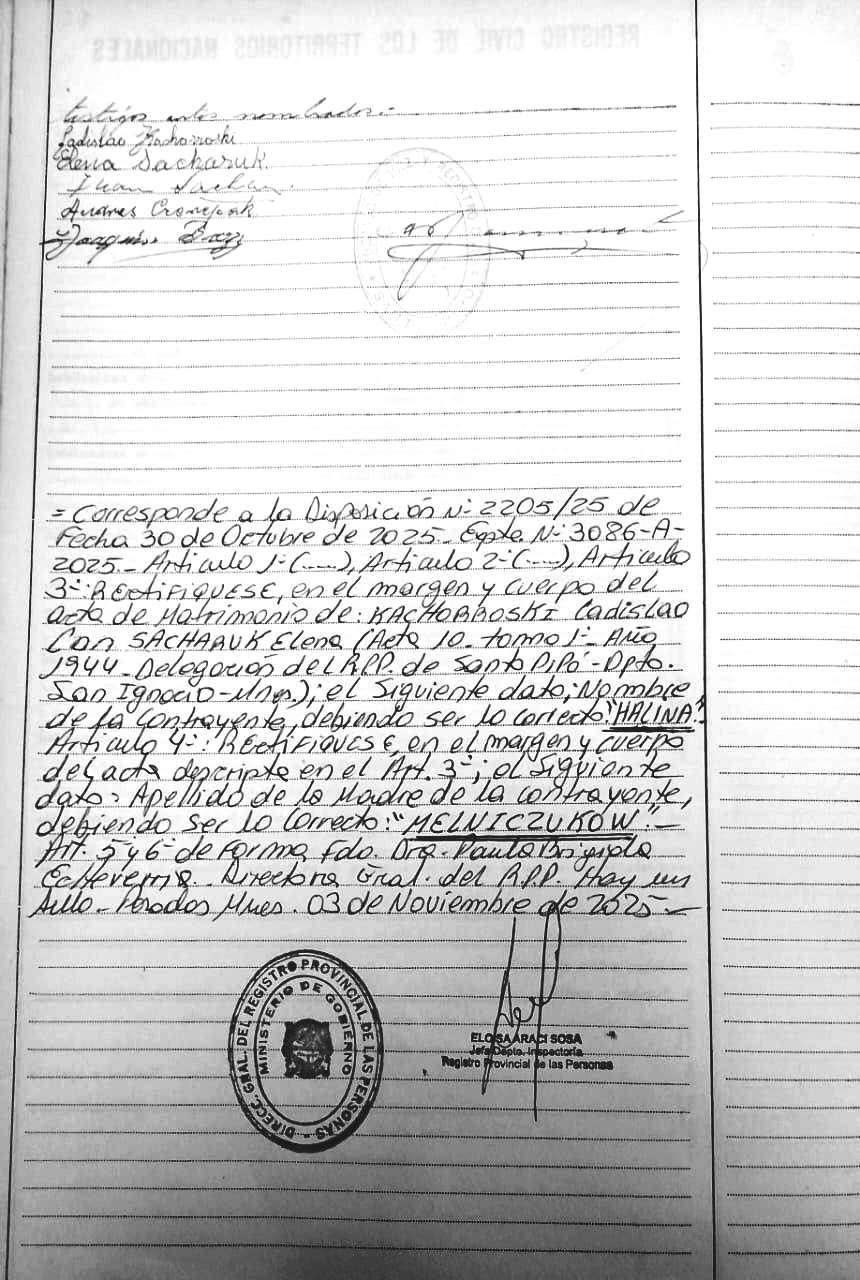 REGISTRO CIVIL DE LOS TERRITORIOS NACIONALES
testigos antes nombrados:-
Ladislao Kachorroski
Elena Sacharuk.
Juan
Andres
Joaquin
= Corresponde a la Disposición N: 2205/25 de
Fecha 30 de Octubre de 2025- Expte. N: 3086-A-
2025.- Articulo 1: (......), Articulo 2: (......), Articulo
3: RECTIFIQUESE, en el margen y cuerpo del
acta de Matrimonio de: KACHORROSKI Ladislao
Con SACHARUK Elena (Acta 10- tomo 1- Año
1944- Delegación del R.P.P. de Santo Pipó- Dpto.
San Ignacio- Mnes.); el Siguiente dato; Nombre
de la Contrayente, debiendo ser lo correcto: "HALINA"-
Articulo 4: RECTIFIQUESE, en el margen y cuerpo
del acta descripta en el Art. 3; el Siguiente
dato: Apellido de la Madre de la contrayente,
debiendo ser lo correcto: "MELNICZUKOW".-
Art. 5 y 6 de Forma Fdo. Dra. Paula Brigida
Echeverria- Directora Gral. del R.P.P. Hay un
sello- Posadas Mnes. 03 de Noviembre de 2025-
DIREC. GRAL. DEL REGISTRO PROVINCIAL DE LAS PERSONAS
MINISTERIO DE GOBIERNO
ELOISA ARACI SOSA
Jefa Dpto. Inspectoría
Registro Provincial de las Personas